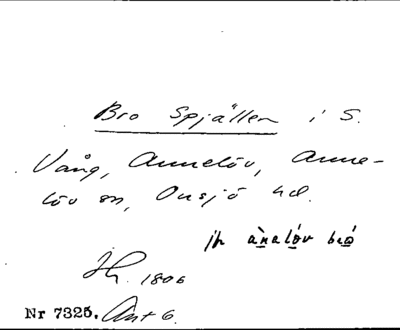 Bro Spjällen i S.
Vång, Annelöv, Anne-
löv sn, Onsjö hd.
jfr ànalǫ́v bró
Jh. 1806
Nr 7325. Ant 6.